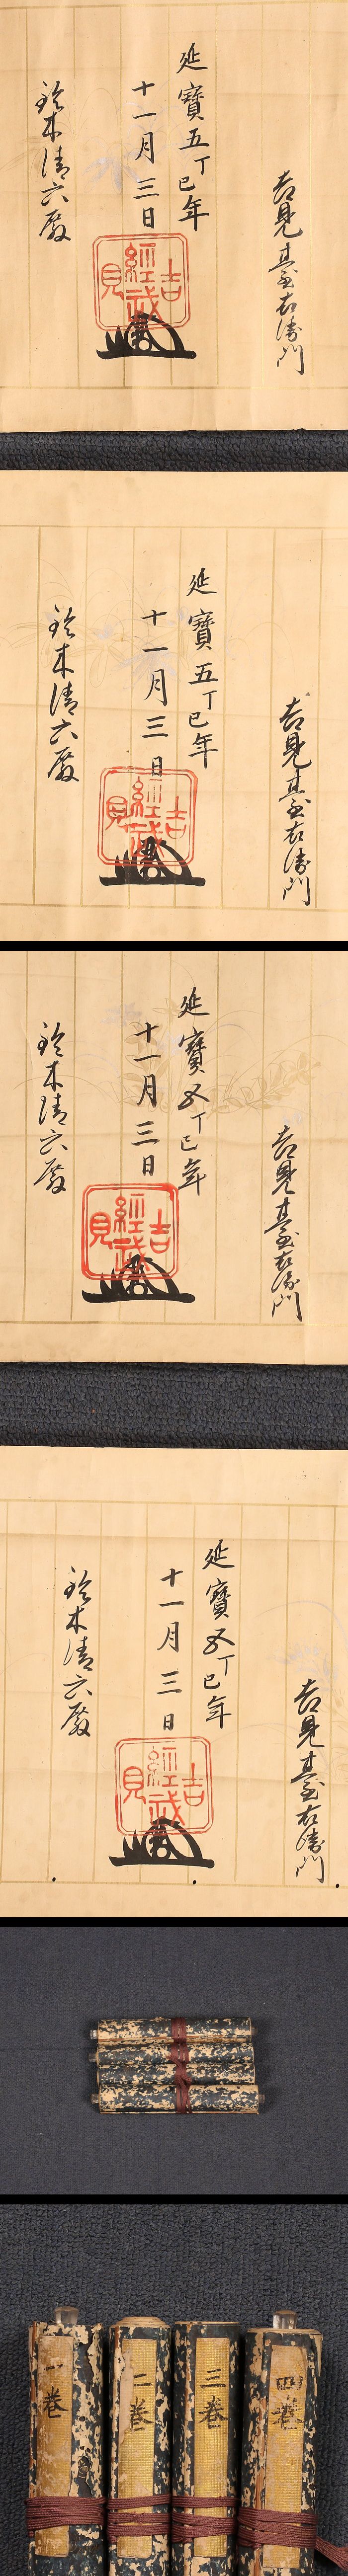 吉見臺右衛門
延寶五丁巳年
十一月三日
吉見
經武
鈴木清六殿
吉見臺右衛門
延寶五丁巳年
十一月三日
吉見
經武
鈴木清六殿
吉見臺右衛門
延寶五丁巳年
十一月三日
吉見
經武
鈴木清六殿
吉見臺右衛門
延寶五丁巳年
十一月三日
吉見
經武
鈴木清六殿
一巻
二巻
三巻
四巻